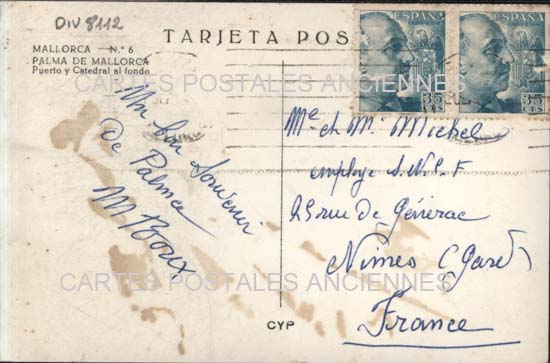 DIV 8112
TARJETA POS
MALLORCA - N.º 6
PALMA DE MALLORCA
Puerto y Catedral al fondo
ESPAÑA
ESPAÑA
35 CTS
35 CTS
CARTES POSTALES ANCIENNES
Un bon Souvenir
De Palma
M Roux
Me et Mr Michel
employe S.N.C.F
25 rue de Générac
Nimes (Gard)
France
CARTES POSTALES ANCIENNES
CYP